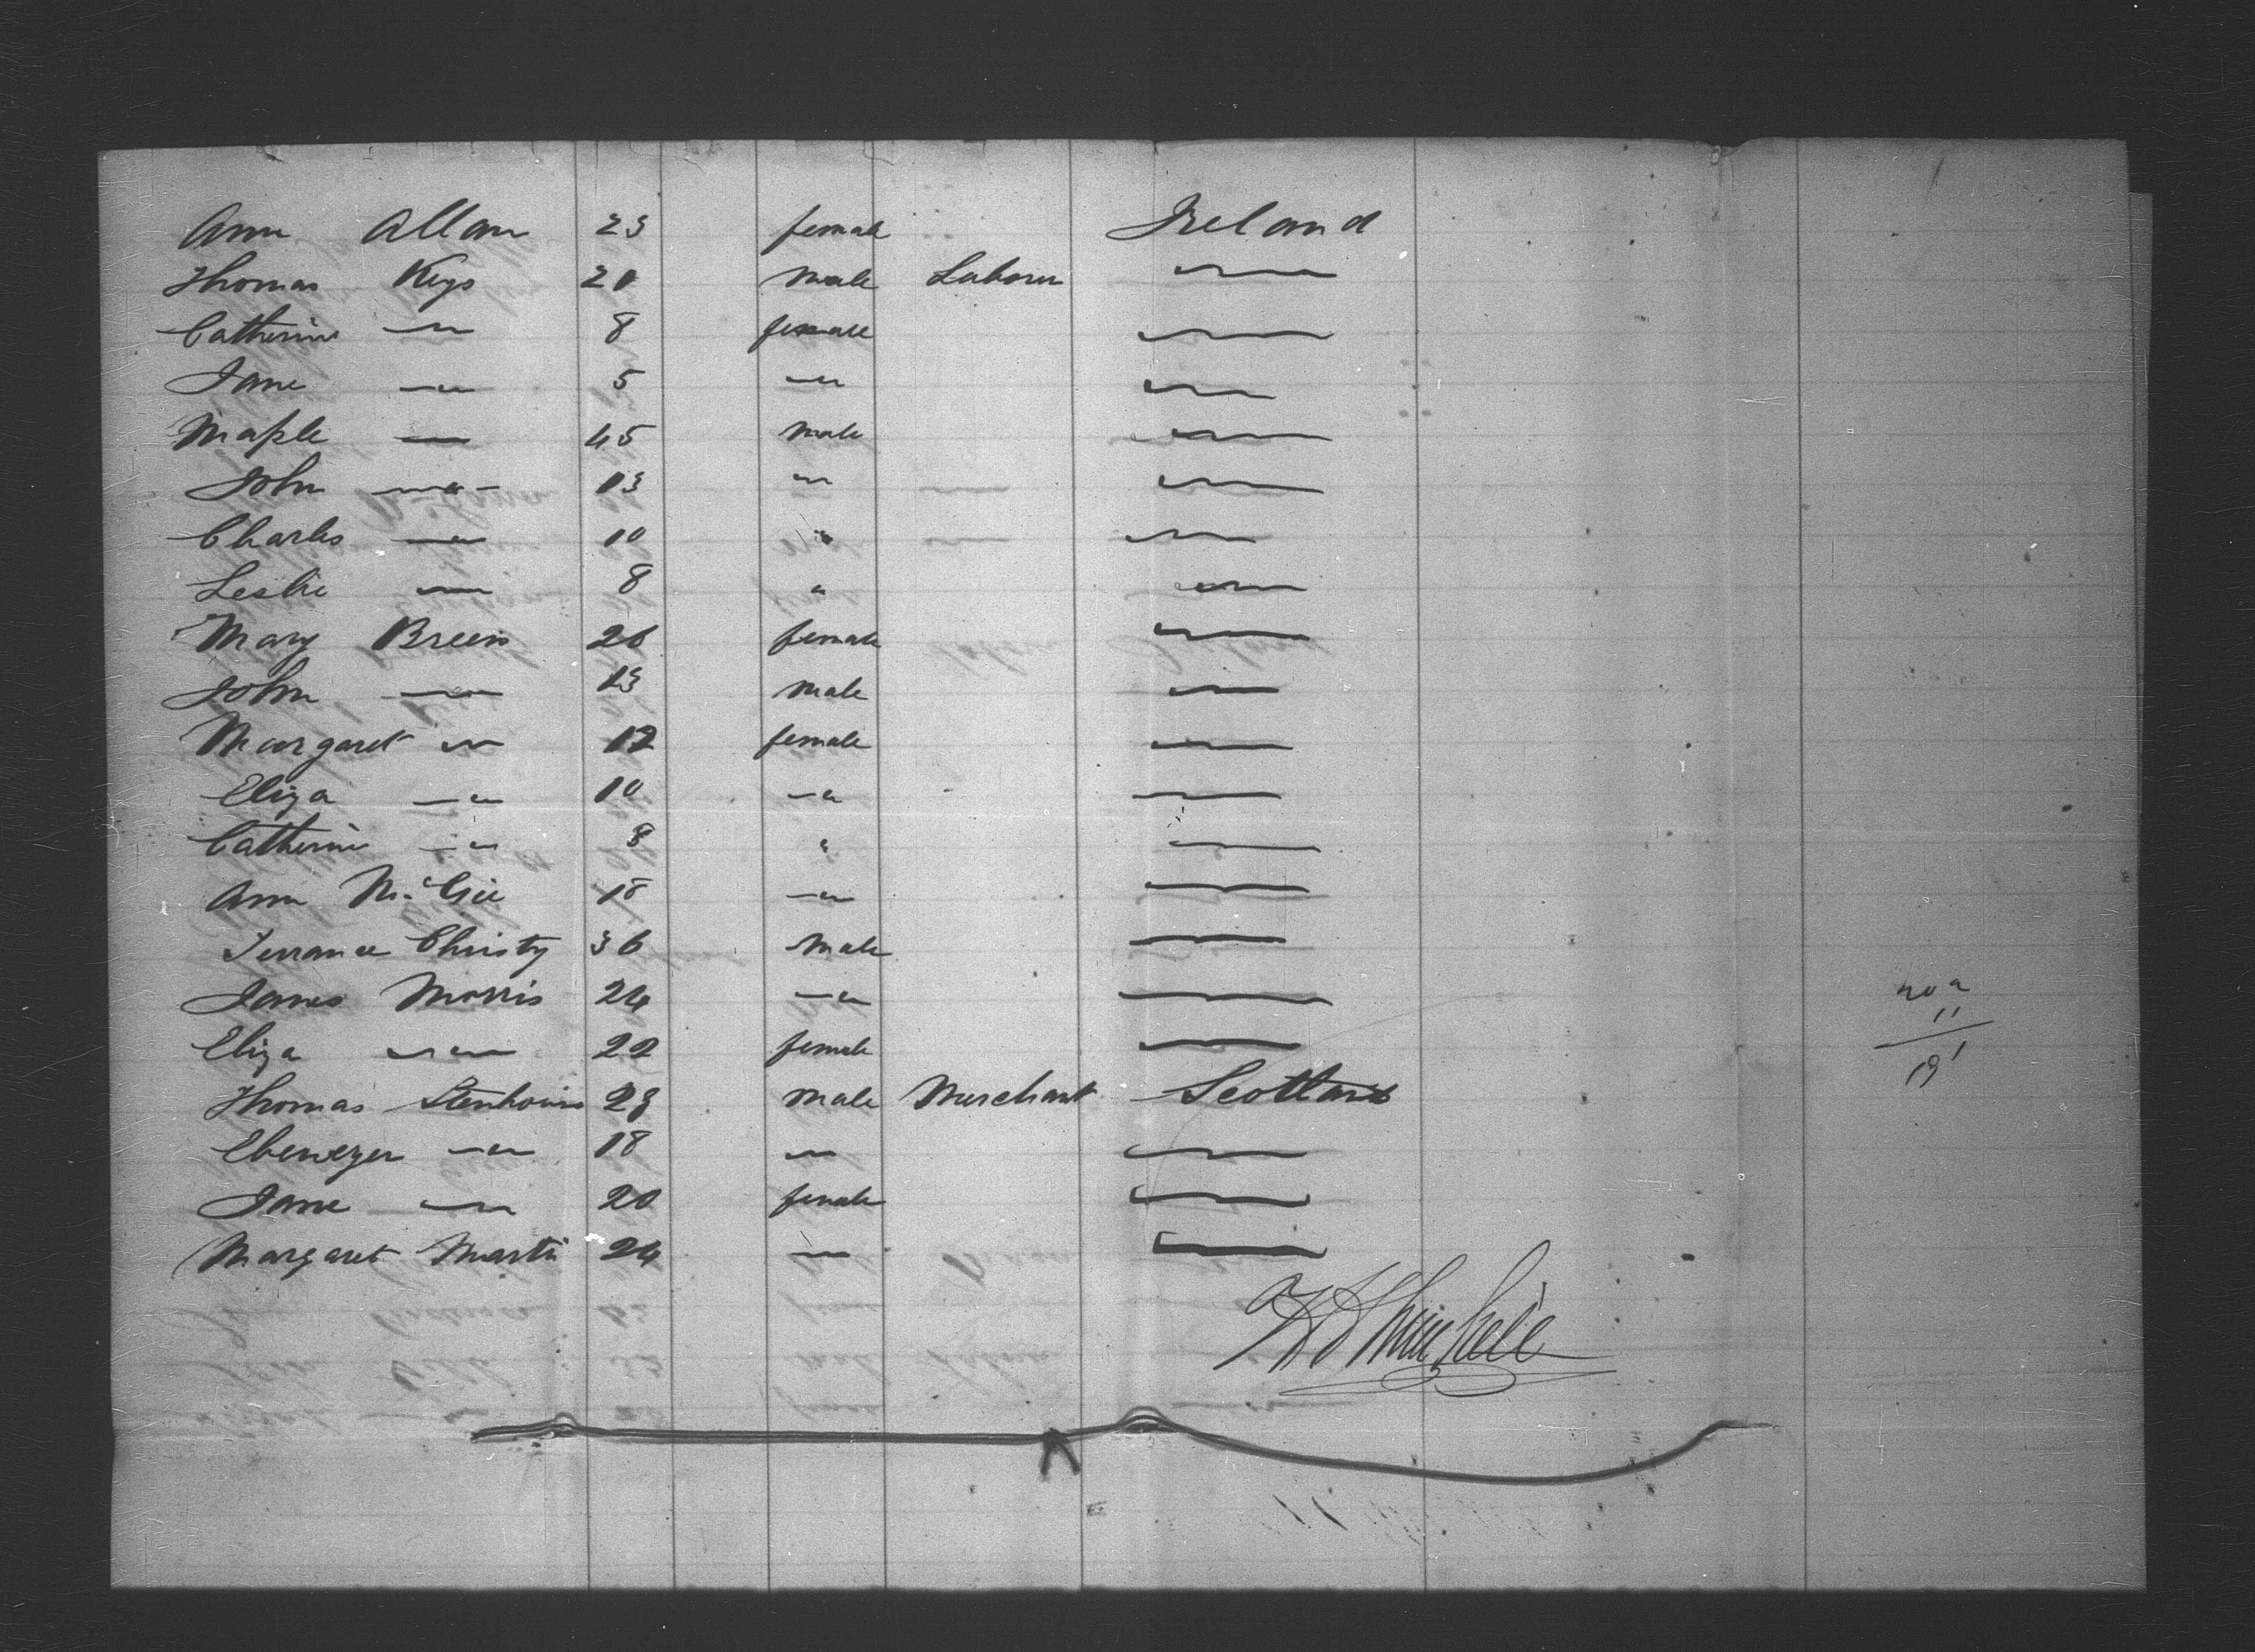 Ann Allan 23 female Ireland
Thomas Keys 20 male Laborer —
Catherine — 8 female —
Jane — 5 — —
Maple — 45 male —
John — 13 " — —
Charles — 10 " — —
Leslie — 8 " —
Mary Breen 26 female —
John — 13 male —
Margaret — 12 female —
Eliza — 10 — —
Catherine — 8 " —
Ann McGee 18 — —
Terrance Christy 36 male —
James Morris 24 — —
Eliza — 22 female —
Thomas Stenhouse 28 male Merchant Scotland
Ebenezer — 18 — —
Jane — 20 female —
Margaret Martin 24 — —
11
191